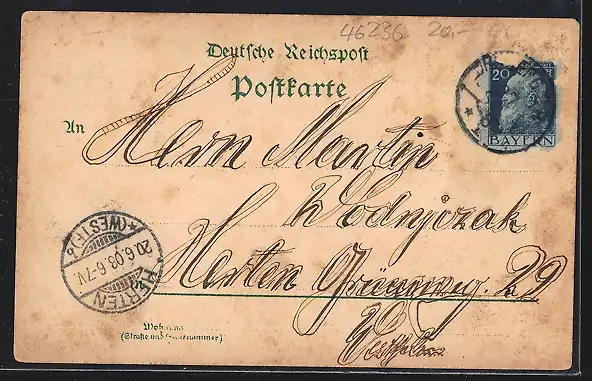 46236 20.-
Deutsche Reichspost
Postkarte
20
BAYERN
An
Herrn Martin
Wodniczak
Herten Grünerweg. 29
Westfalen
HERTEN
20.6.03.6-7N
* (WESTF.)
Wohnung
(Straße und Hausnummer)